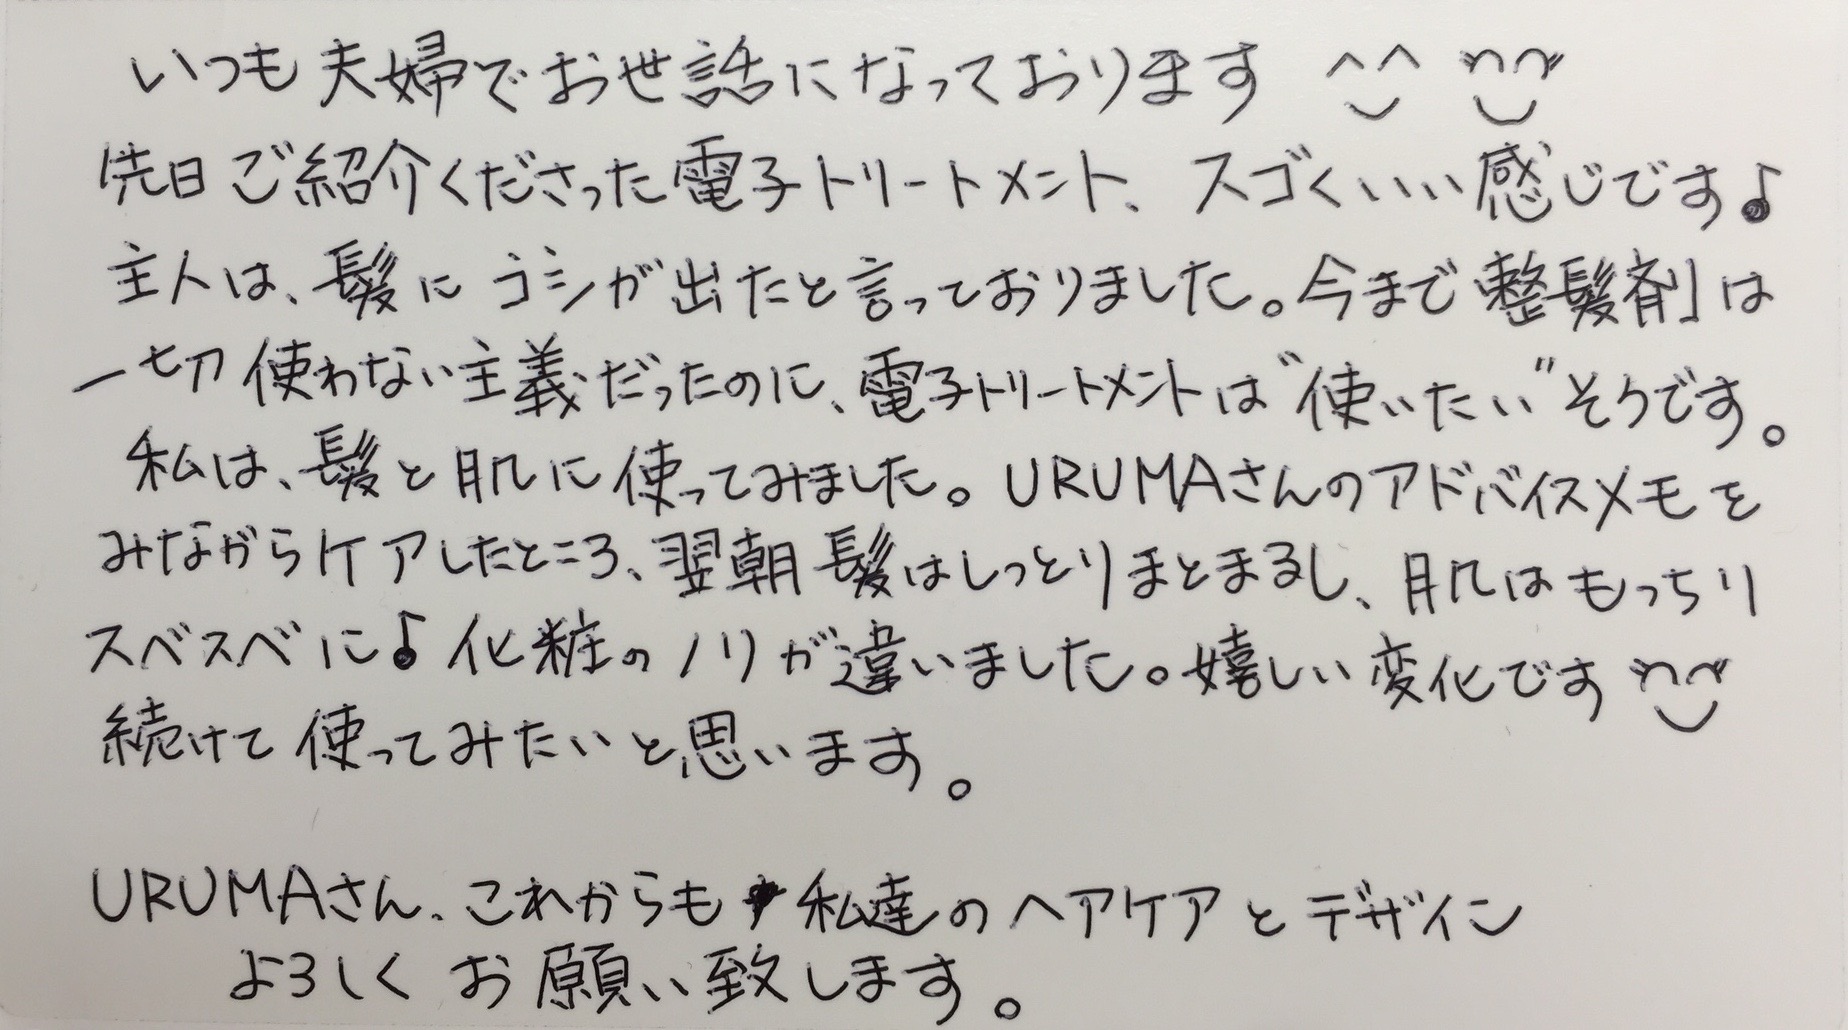 いつも夫婦でお世話になっております ^^ ^^
先日ご紹介くださった電子トリートメント、スゴくいい感じです♪
主人は、髪にコシが出たと言っておりました。今まで整髪剤は
一切使わない主義だったのに、電子トリートメントは"使いたい"そうです。
私は、髪と肌に使ってみました。URUMAさんのアドバイスメモを
みながらケアしたところ、翌朝髪はしっとりまとまるし、肌はもっちり
スベスベに♪化粧のノリが違いました。嬉しい変化です
続けて使ってみたいと思います。
URUMAさん、これからも私達のヘアケアとデザイン
よろしくお願い致します。